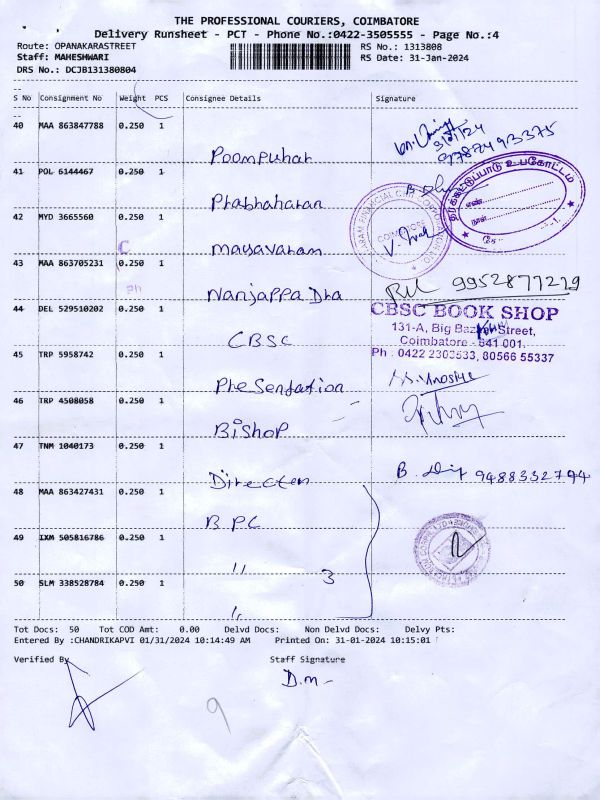 THE PROFESSIONAL COURIERS, COIMBATORE
Delivery Runsheet - PCT - Phone No.:0422-3505555 - Page No.:4
Route: OPANAKARASTREET
RS No.: 1313808
Staff: MAHESHWARI
RS Date: 31-Jan-2024
DRS No.: DCJB131380804
S No Consignment No Weight PCS Consignee Details Signature
40 MAA 863847788 0.250 1 Poompuhar
9787493375
41 POL 6144467 0.250 1 Prabhaharan
தரக்கட்டுப்பாடு உபகோட்டம்
எண்
நாள்
42 MYD 3665560 0.250 1 mayavaram
COIMBATORE
C
43 MAA 863705231 0.250 1 Nanjappa Dra
9952877279
Ph
44 DEL 529510202 0.250 1 CBSC
CBSC BOOK SHOP
131-A, Big Bazaar Street,
Coimbatore - 641 001.
Ph : 0422 2303533, 80566 55337
45 TRP 5958742 0.250 1 Presentation
46 TRP 4508058 0.250 1 Bishop
47 TNM 1040173 0.250 1 Director
9488332794
48 MAA 863427431 0.250 1 BPC
49 IXM 505816786 0.250 1 " 3
50 SLM 338528784 0.250 1 "
Tot Docs: 50 Tot COD Amt: 0.00 Delvd Docs: Non Delvd Docs: Delvy Pts:
Entered By :CHANDRIKAPVI 01/31/2024 10:14:49 AM Printed On: 31-01-2024 10:15:01
Verified By
Staff Signature
D.m-
9